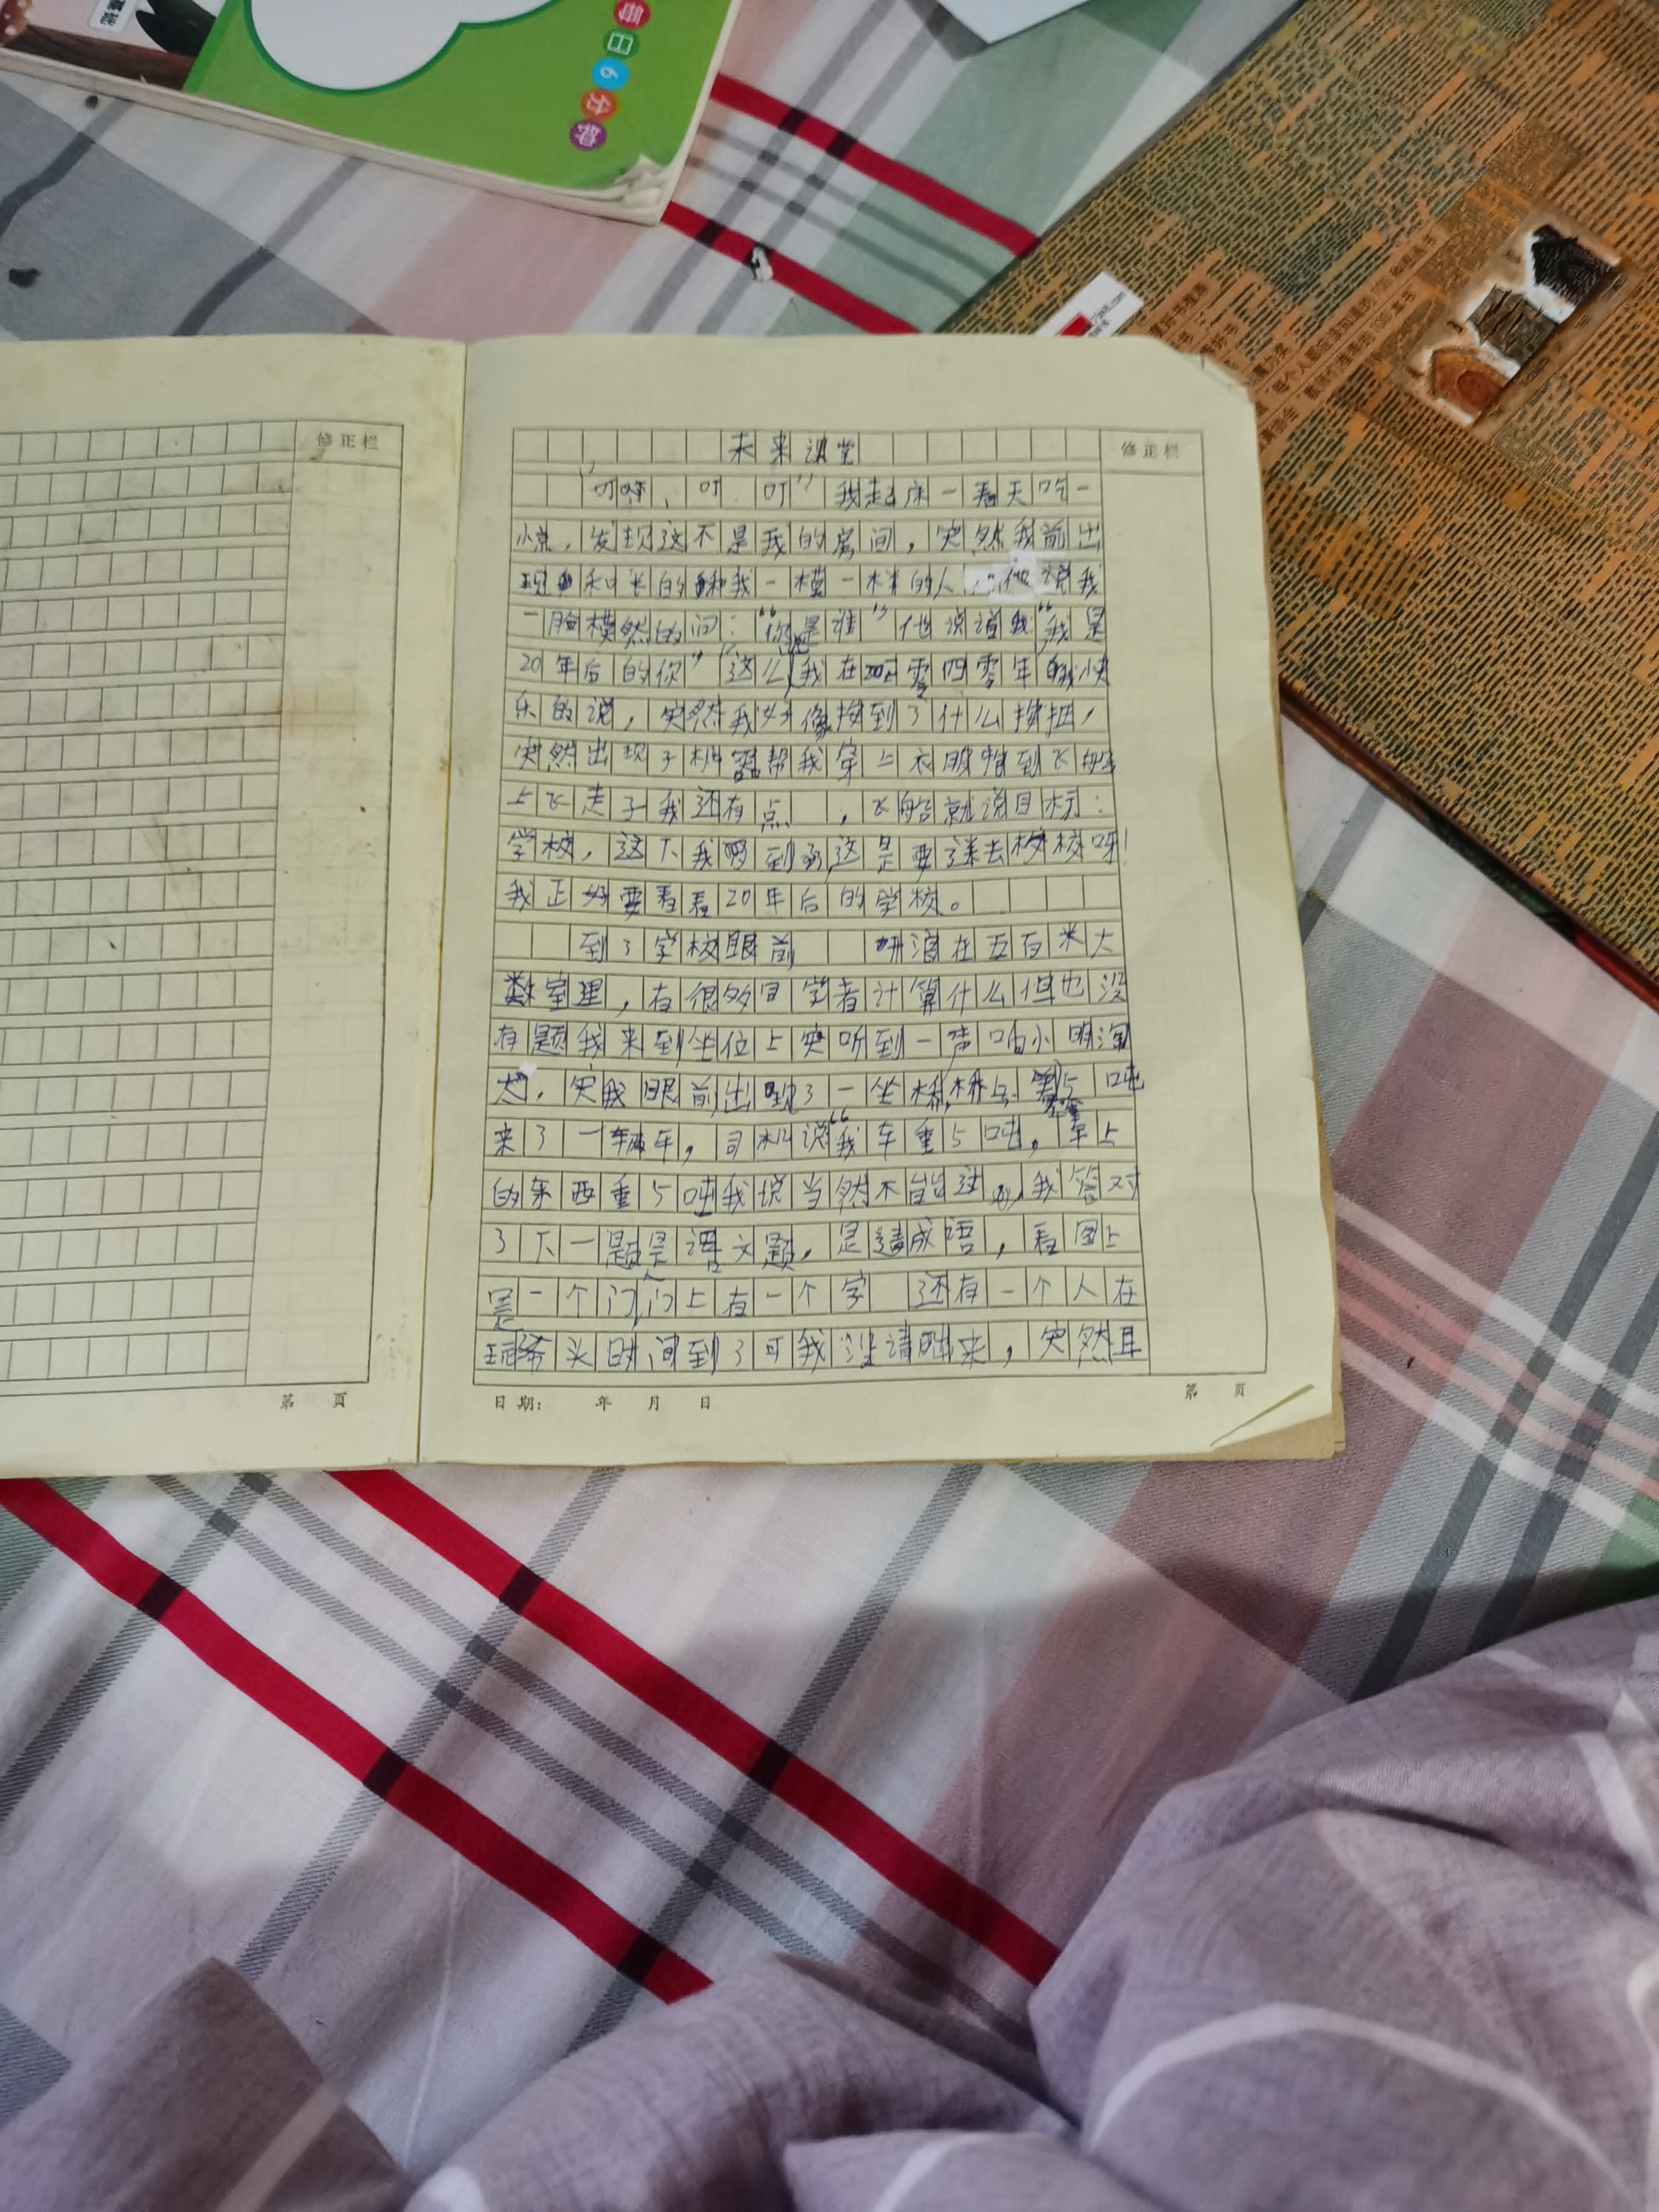 每日6分钟
修正栏
未来课堂
修正栏
"叮咛、叮 叮"我起床一看天吃一
惊,发现这不是我的房间,突然我前出
现 和长的和我一模一样的人 他说我
一脸模然的问:"你是谁"他说说我"我是
20年后的你""这么我在 零四零年 我快
乐的说,突然我好像按到了什么按扭,
突然出现了机器帮我穿上衣服 到飞船
上飞走了我还有点 ,飞船就说目标:
学校,这下我 到 这是要送去 校呀!
我正好要看看20年后的学校。
到了学校眼前 在五百米大
教室里,有很多同学着计算什么但也没
有题我来到坐位上突听到一声 小明淘
犬,突我眼前出现了一坐桥,桥上 5吨
来了一辆车,司机说"我车重5吨,车上
的东西重5吨我说当然不能过 我答对
了下一题是语文题,是 成语,看图上
是一个门,门上有一个字 还有一个人在
头时间到了可我没请 来,突然耳
第 页
日期: 年 月 日
第 页